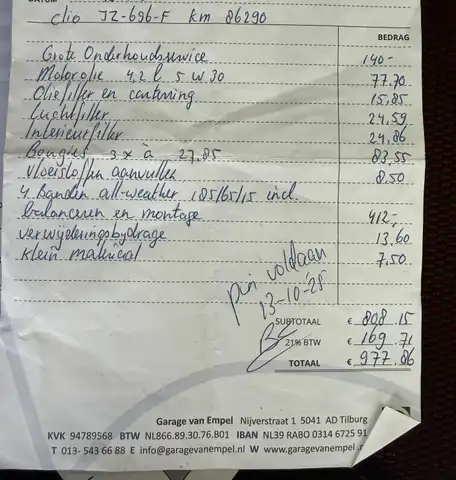 Clio JZ-696-F km 86290
BEDRAG
Grote Onderhoudsservice 140-
Motorolie 4.2 l 5 W 30 77.70
Oliefilter en carterring 15,85
Luchtfilter 24,59
Interieurfilter 24,86
Bougies 3 x à 27.85 83,55
vloeistoffen aanvullen 8.50
4 Banden all-weather 185/65/15 incl.
balanceren en montage 412,-
verwijderingsbydrage 13,60
klein materiaal 7,50
pin voldaan
13-10-25
SUBTOTAAL € 808.15
21% BTW € 169.71
TOTAAL € 977.86
Garage van Empel Nijverstraat 1 5041 AD Tilburg
KVK 94789568 BTW NL866.89.30.76.B01 IBAN NL39 RABO 0314 6725 91
T 013- 543 66 88 E info@garagevanempel.nl W www.garagevanempel.n